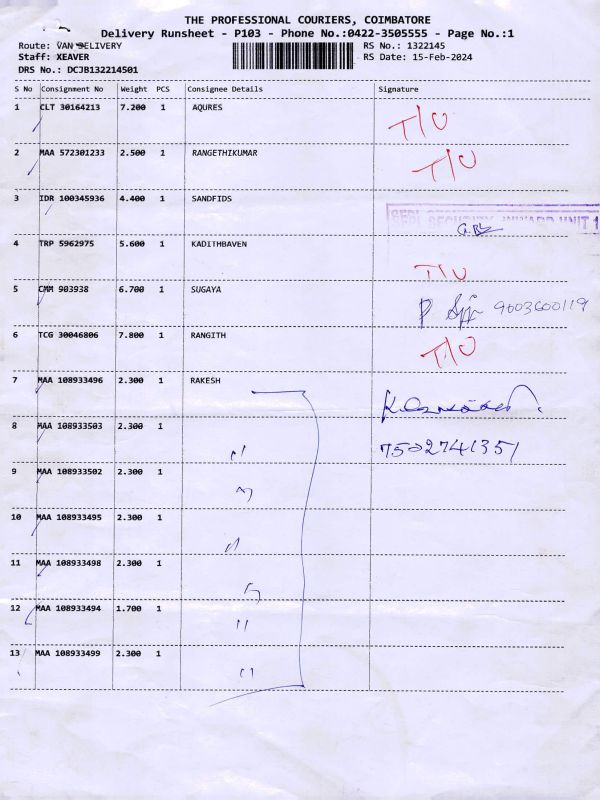 THE PROFESSIONAL COURIERS, COIMBATORE
Delivery Runsheet - P103 - Phone No.:0422-3505555 - Page No.:1
Route: VAN DELIVERY RS No.: 1322145
Staff: XEAVER RS Date: 15-Feb-2024
DRS No.: DCJB132214501
S No Consignment No Weight PCS Consignee Details Signature
1 CLT 30164213 7.200 1 AQURES T/U
2 MAA 572301233 2.500 1 RANGETHIKUMAR T/U
3 IDR 100345936 4.400 1 SANDFIDS
SECURITY INWARD UNIT 1
4 TRP 5962975 5.600 1 KADITHBAVEN T/U
5 CMM 903938 6.700 1 SUGAYA 9003600119
6 TCG 30046806 7.800 1 RANGITH T/U
7 MAA 108933496 2.300 1 RAKESH
8 MAA 108933503 2.300 1 " 7502741351
9 MAA 108933502 2.300 1 "
10 MAA 108933495 2.300 1 "
11 MAA 108933498 2.300 1 "
12 MAA 108933494 1.700 1 "
13 MAA 108933499 2.300 1 "